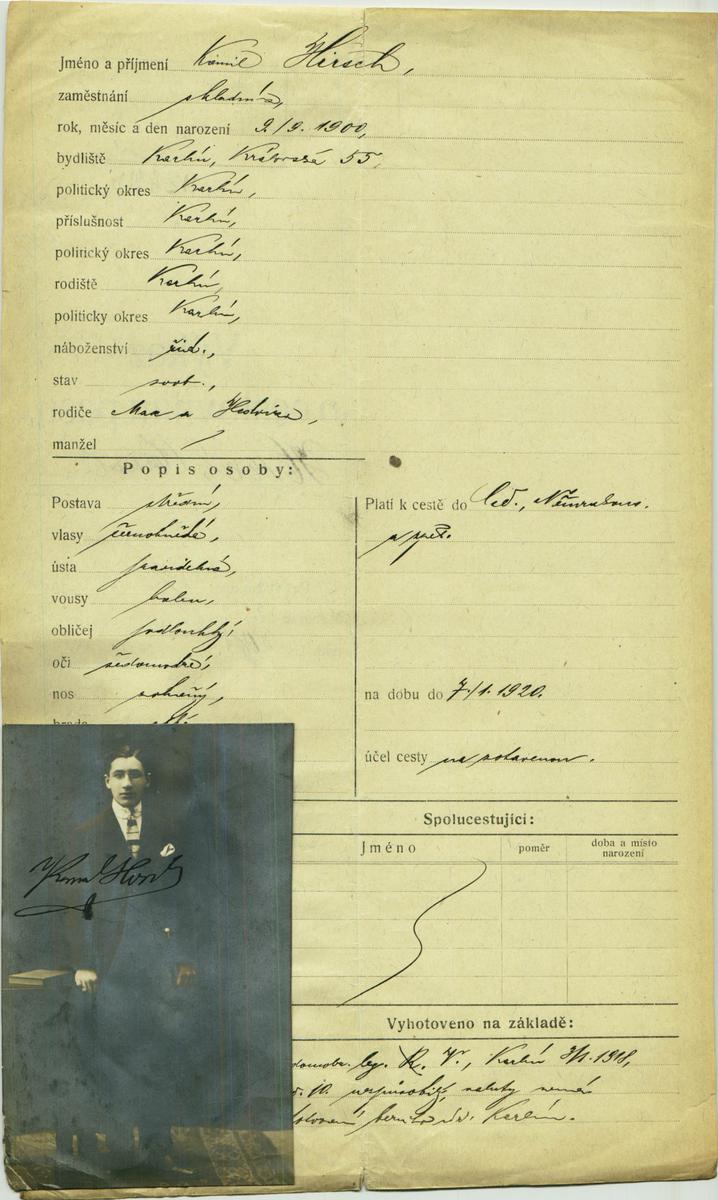 Jméno a příjmení Kamil Hirsch,
zaměstnání skladník,
rok, měsíc a den narození 9./9. 1900,
bydliště Karlín, Královská 55,
politický okres Karlín,
příslušnost Karlín,
politický okres Karlín,
rodiště Karlín,
politicky okres Karlín,
náboženství žid.,
stav svob.,
rodiče Max a Hedvika,
manžel /
Popis osoby:
Postava střední,
vlasy černohnědé,
ústa pravidelná,
vousy holen,
obličej podlouhlý,
oči šedomodré,
nos
Platí k cestě do Něm. Rakous.
a zpět.
na dobu do 7./1. 1920.
účel cesty na zotavenou.
Spolucestující:
Jméno poměr doba a místo narození
Kamil Hirsch
Vyhotoveno na základě:
domov. R. V., Karlín 1918,
nemá
Karlín.